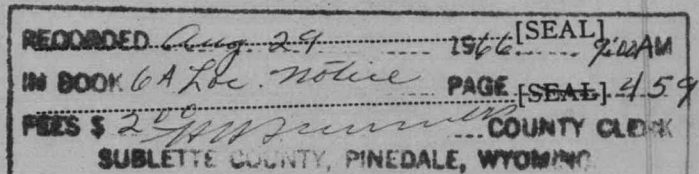 RECORDED Aug. 29 1966 [SEAL] 9:00 AM
IN BOOK 6A Loc. Notice PAGE [SEAL] 459
FEES $ 2.00 COUNTY CLERK
SUBLETTE COUNTY, PINEDALE, WYOMING